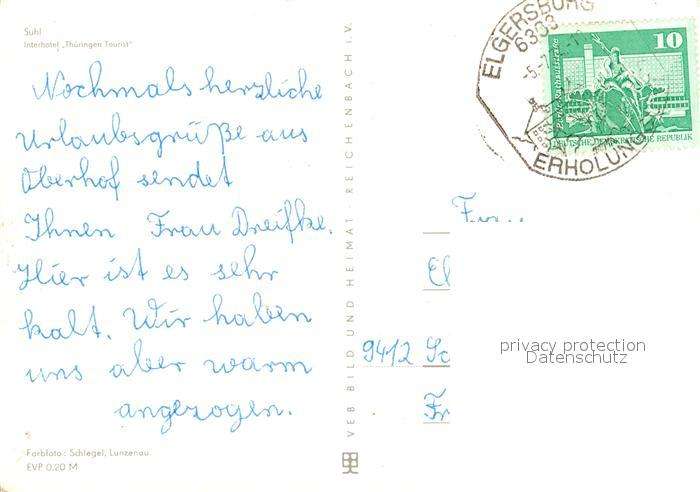 Suhl
Interhotel „Thüringen Tourist"
Nochmals herzliche
Urlaubsgrüße aus
Oberhof sendet
Ihnen Frau Dreifke.
Hier ist es sehr
kalt. Wir haben
uns aber warm
angezogen.
Farbfoto: Schlegel, Lunzenau
EVP 0,20 M
VEB BILD UND HEIMAT REICHENBACH I.V.
ELGERSBURG
6303
ERHOLUNG
10
DEUTSCHE DEMOKRATISCHE REPUBLIK
9412
privacy protection
Datenschutz